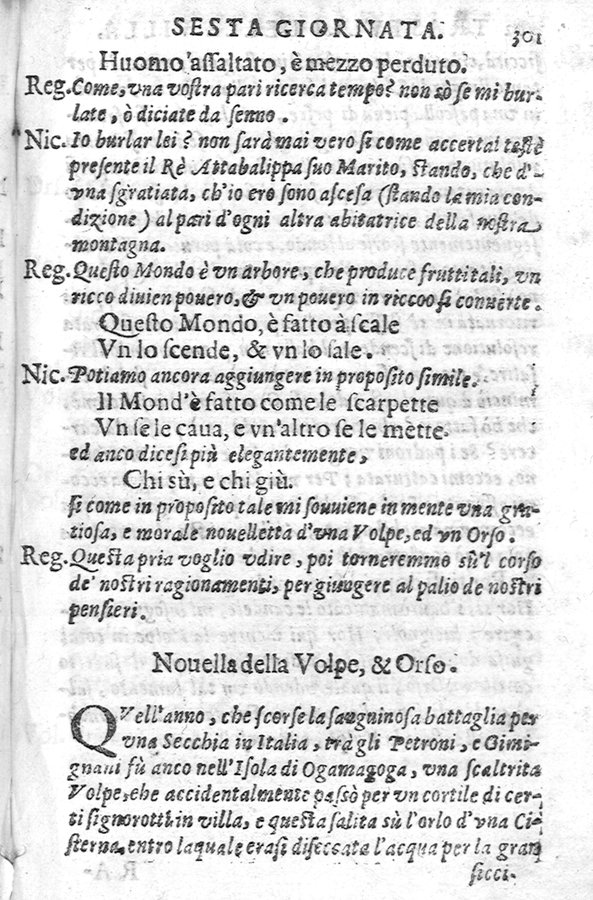 SESTA GIORNATA. 301
Huomo assaltato, è mezzo perduto.
Reg. Come, vna vostra pari ricerca tempo? non sò se mi bur-
late, ò diciate da senno.
Nic. Io burlar lei? non sarà mai vero si come accertai testè
presente il Rè Attabalippa suo Marito, stando, che d'-
vna sgratiata, ch'io ero sono ascesa (stando la mia con-
dizione) al pari d'ogni altra abitatrice della nostra
montagna.
Reg. Questo Mondo è vn arbore, che produce frutti tali, vn
ricco diuien pouero, & vn pouero in riccoo si conuerte.
Questo Mondo, è fatto à scale
Vn lo scende, & vn lo sale.
Nic. Potiamo ancora aggiungere in proposito simile.
Il Mond'è fatto come le scarpette
Vn se le caua, e vn'altro se le mètte.
ed anco dicesi più elegantemente,
Chi sù, e chi giù.
si come in proposito tale mi souuiene in mente vna gra-
tiosa, e morale nouelletta d'vna Volpe, ed vn Orso.
Reg. Questa pria voglio vdire, poi torneremmo sù'l corso
de' nostri ragionamenti, per giungere al palio de nostri
pensieri.
Nouella della Volpe, & Orso.
QVell'anno, che scorse la sanguinosa battaglia per
vna Secchia in Italia, trà gli Petroni, e Gimi-
gnani fù anco nell'Isola di Ogamagoga, vna scaltrita
Volpe, che accidentalmente passò per vn cortile di cer-
ti signorotti in villa, e questa salita sù l'orlo d'vna Ci-
sterna, entro laquale erasi disseccata l'acqua per la gran
sicci-